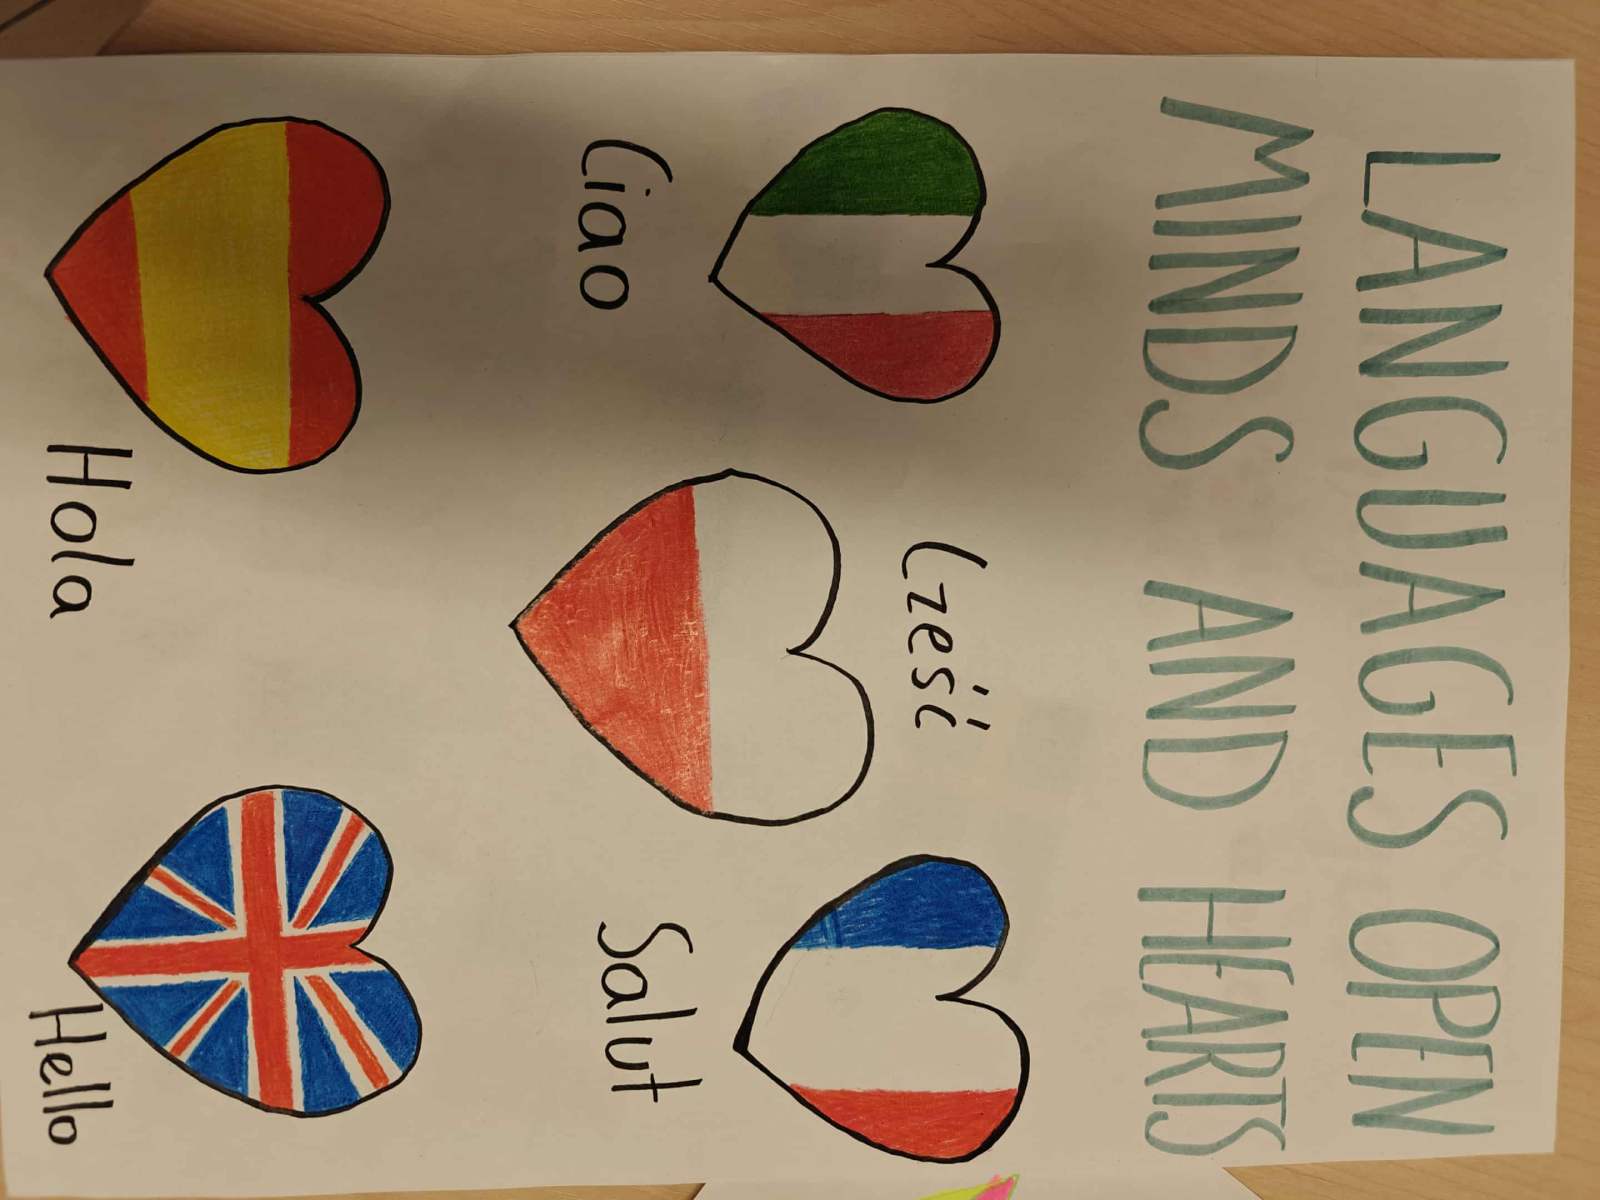 LANGUAGES OPEN
MINDS AND HEARTS
Cześć
Ciao
Salut
Hola
Hello